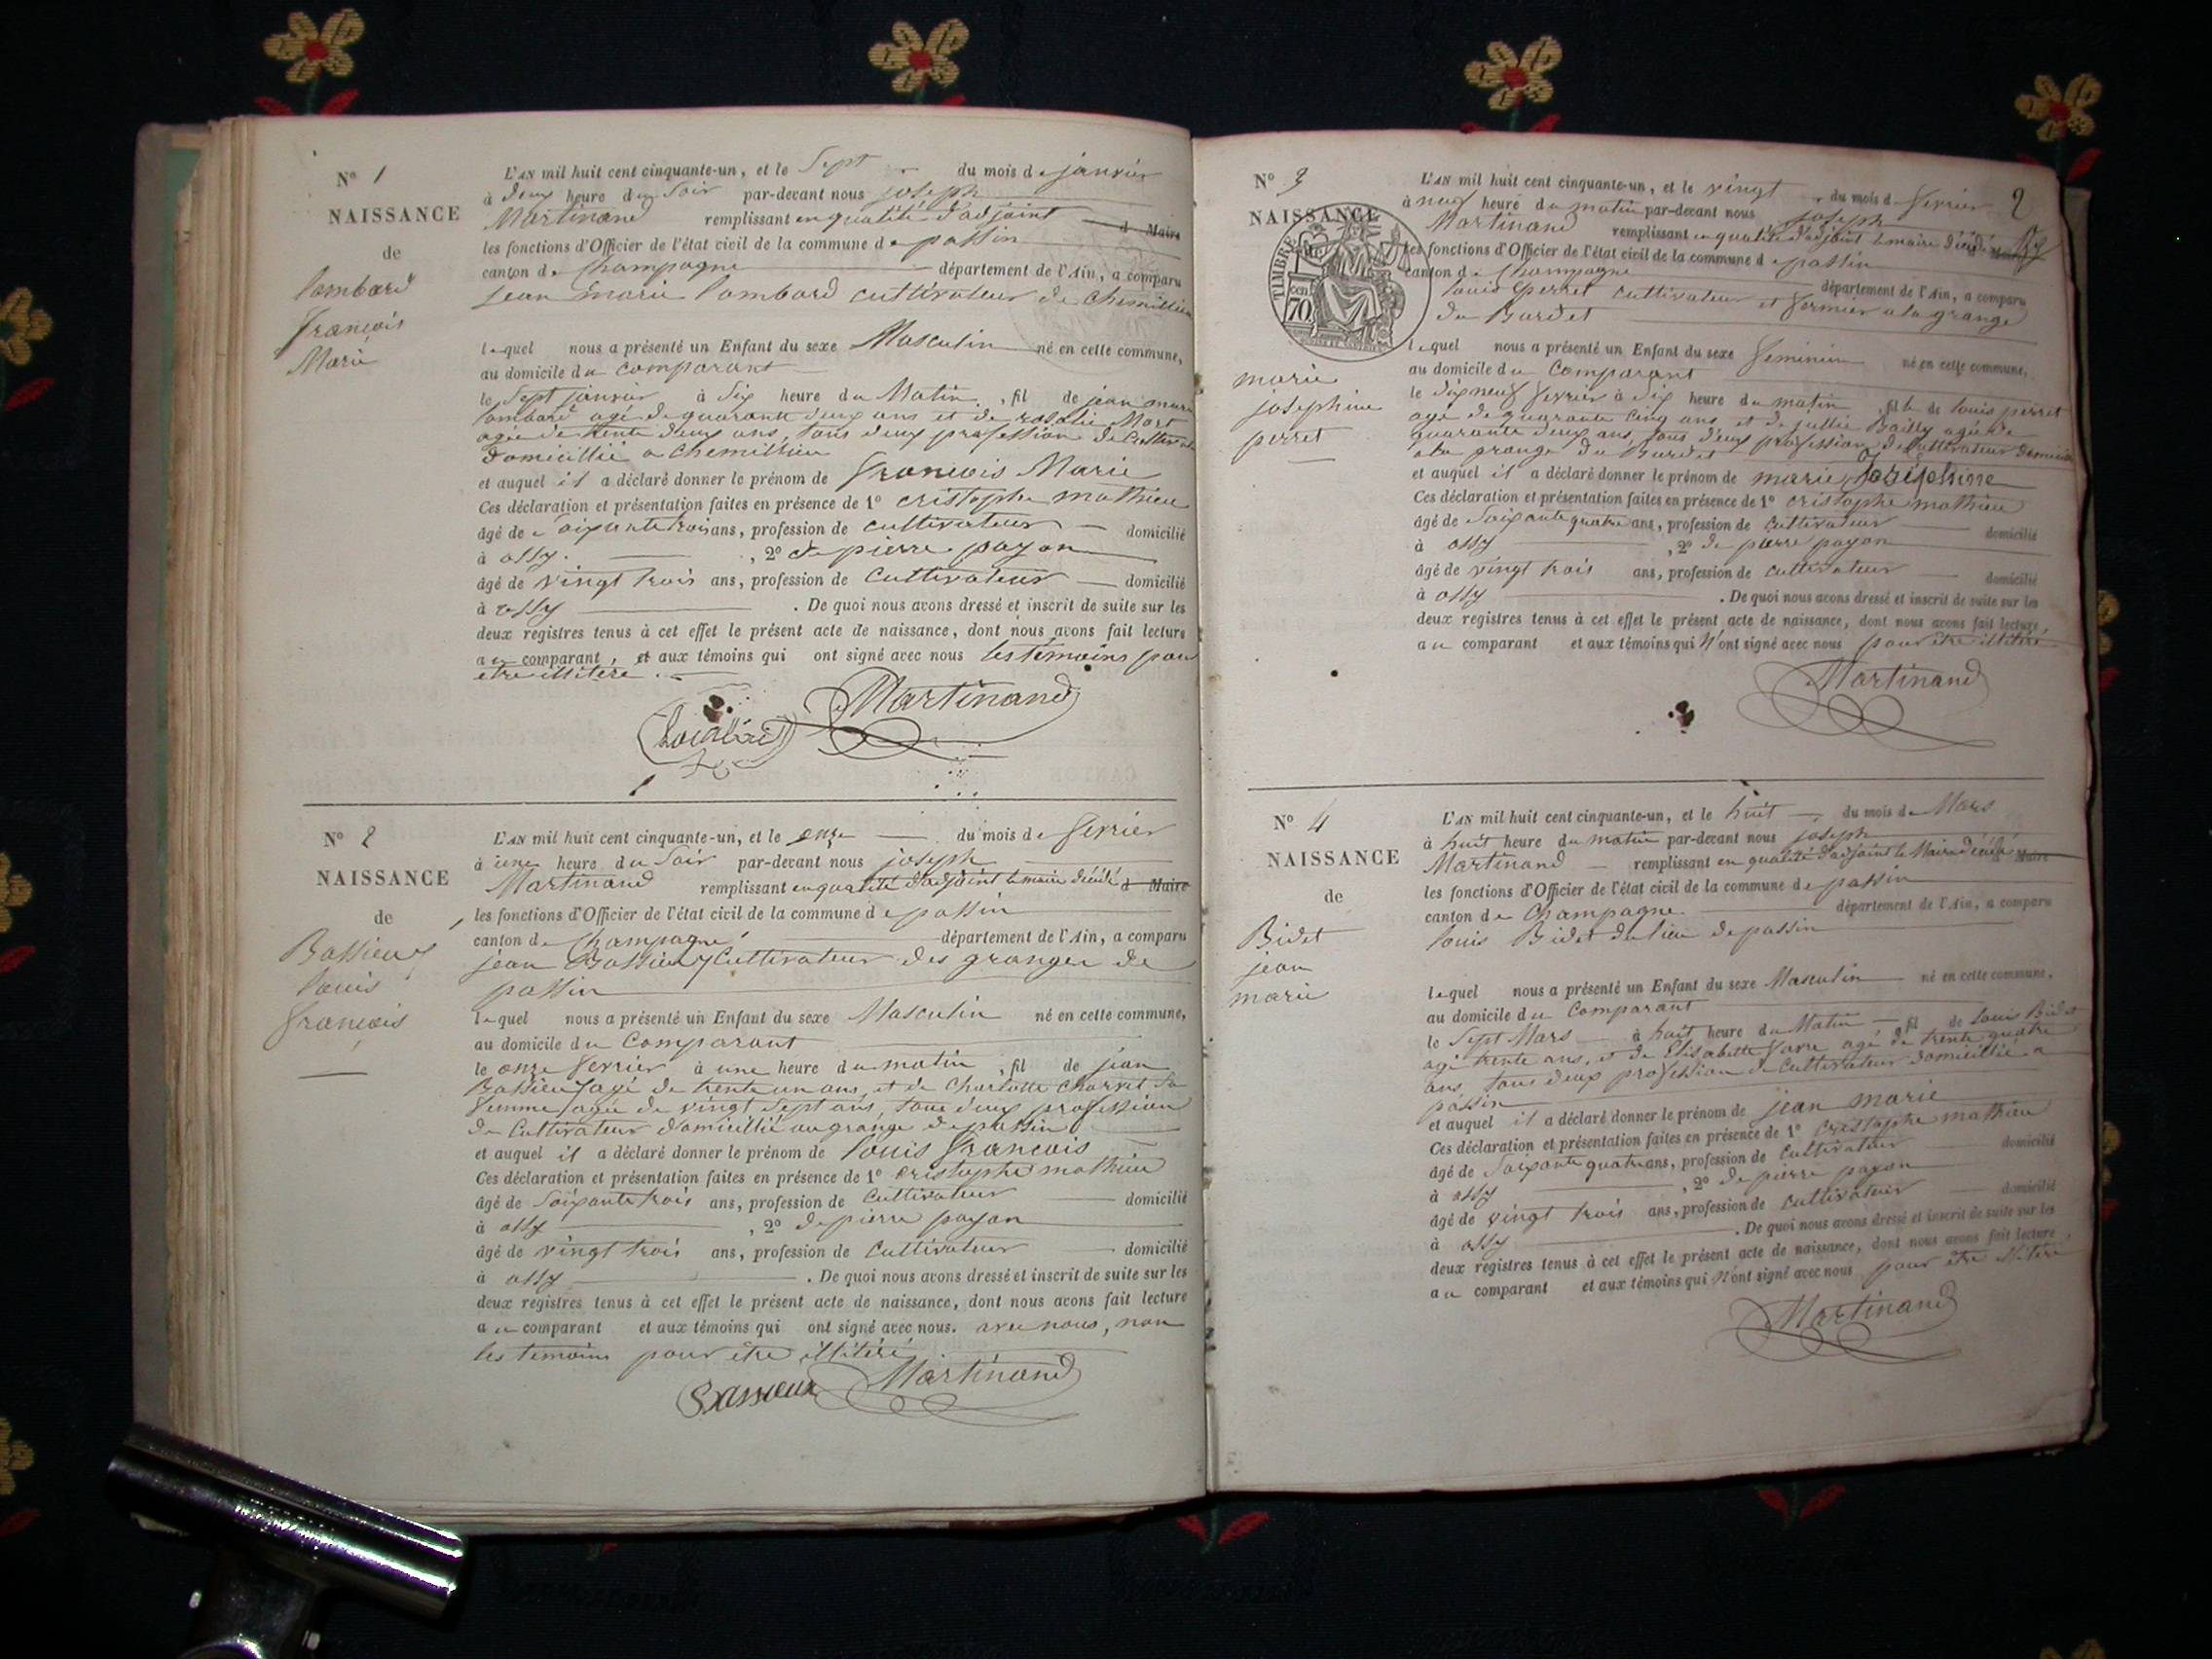 N° 1
NAISSANCE
de
lombard
françois
Marie
L'AN mil huit cent cinquante-un, et le Sept du mois de janvier
à deux heure du Soir par-devant nous joseph
Martinand remplissant en qualité d'adjoint d Maire
les fonctions d'Officier de l'état civil de la commune de passin
canton de Champagne département de l'Ain, a comparu
jean marie lombard cultivateur de Chemillieu
lequel nous a présenté un Enfant du sexe Masculin né en cette commune,
au domicile du Comparant
le Sept janvier à Six heure du Matin, fil de jean marie
lombard agé de quarante deux ans et de rosalie Mort
agée de trente deux ans, tous deux profession de Cultivateur
domicillié a Chemillieu
et auquel il a déclaré donner le prénom de françois Marie
Ces déclaration et présentation faites en présence de 1° cristophe mathieu
âgé de Soixante trois ans, profession de cultivateur domicilié
à ossy. , 2° de pierre payan
âgé de vingt trois ans, profession de Cultivateur domicilié
à ossy . De quoi nous avons dressé et inscrit de suite sur les
deux registres tenus à cet effet le présent acte de naissance, dont nous avons fait lecture
au comparant, et aux témoins qui ont signé avec nous les témoins pour
etre illitéré.
Martinand
N° 2
NAISSANCE
de
Bassieux
louis
françois
L'AN mil huit cent cinquante-un, et le onze du mois de fevrier
à une heure du Soir par-devant nous joseph
Martinand remplissant en qualité d'adjoint le maire décédé d Maire
les fonctions d'Officier de l'état civil de la commune de passin
canton de Champagne département de l'Ain, a comparu
jean Bassieux Cultivateur des granges de
passin
lequel nous a présenté un Enfant du sexe Masculin né en cette commune,
au domicile du Comparant
le onze fevrier à une heure du matin, fil de jean
Bassieux agé de trente un ans, et de Charlotte Charvet Sa
femme agée de vingt Sept ans, tous deux profession
de Cultivateur domicillié au grange de passin
et auquel il a déclaré donner le prénom de louis francois
Ces déclaration et présentation faites en présence de 1° cristophe mathieu
âgé de Soixante trois ans, profession de Cultivateur domicilié
à ossy , 2° de pierre payan
âgé de vingt trois ans, profession de Cultivateur domicilié
à ossy . De quoi nous avons dressé et inscrit de suite sur les
deux registres tenus à cet effet le présent acte de naissance, dont nous avons fait lecture
au comparant et aux témoins qui ont signé avec nous. avec nous, non
les temoins pour être illitéré
Bassieux Martinand
2
N° 3
NAISSANCE
TIMBRE
70
marie
josephine
perret
L'AN mil huit cent cinquante-un, et le vingt du mois de fevrier
à neuf heure du matin par-devant nous joseph
Martinand remplissant en qualité d'adjoint le maire décédé
les fonctions d'Officier de l'état civil de la commune de passin
canton de Champagne département de l'Ain, a comparu
louis perret cultivateur et fermier a la grange
du Burdet
lequel nous a présenté un Enfant du sexe feminin né en cette commune,
au domicile du Comparant
le dixneuf fevrier à Six heure du matin, fille de louis perret
agé de quarante Cinq ans, et de jullie Bailly agée de
quarante deux ans, tous deux profession de Cultivateur domicillié
a la grange du Burdet
et auquel il a déclaré donner le prénom de marie Joséphine
Ces déclaration et présentation faites en présence de 1° cristophe mathieu
âgé de Soixante quatre ans, profession de Cultivateur domicilié
à ossy , 2° de pierre payan
âgé de vingt trois ans, profession de cultivateur domicilié
à ossy . De quoi nous avons dressé et inscrit de suite sur les
deux registres tenus à cet effet le présent acte de naissance, dont nous avons fait lecture,
au comparant et aux témoins qui N'ont signé avec nous pour être illitéré
Martinand
N° 4
NAISSANCE
de
Bidet
jean
marie
L'AN mil huit cent cinquante-un, et le huit du mois de Mars
à huit heure du matin par-devant nous joseph
Martinand remplissant en qualité d'adjoint le Maire décédé Maire
les fonctions d'Officier de l'état civil de la commune de passin
canton de Champagne. département de l'Ain, a comparu
louis Bidet du lieu de passin
lequel nous a présenté un Enfant du sexe Masculin né en cette commune,
au domicile du Comparant
le Sept Mars à huit heure du Matin fil de louis Bidet
agé trente ans, et de Elisabette favre agé de trente quatre
ans, tous deux profession de Cultivateur domicillié a
passin
et auquel il a déclaré donner le prénom de jean marie
Ces déclaration et présentation faites en présence de 1° Cristophe mathieu
âgé de Soixante quatre ans, profession de Cultivateur domicilié
à ossy , 2° de pierre payan
âgé de vingt trois ans, profession de cultivateur domicilié
à ossy . De quoi nous avons dressé et inscrit de suite sur les
deux registres tenus à cet effet le présent acte de naissance, dont nous avons fait lecture,
au comparant et aux témoins qui N'ont signé avec nous pour être illitéré
Martinand